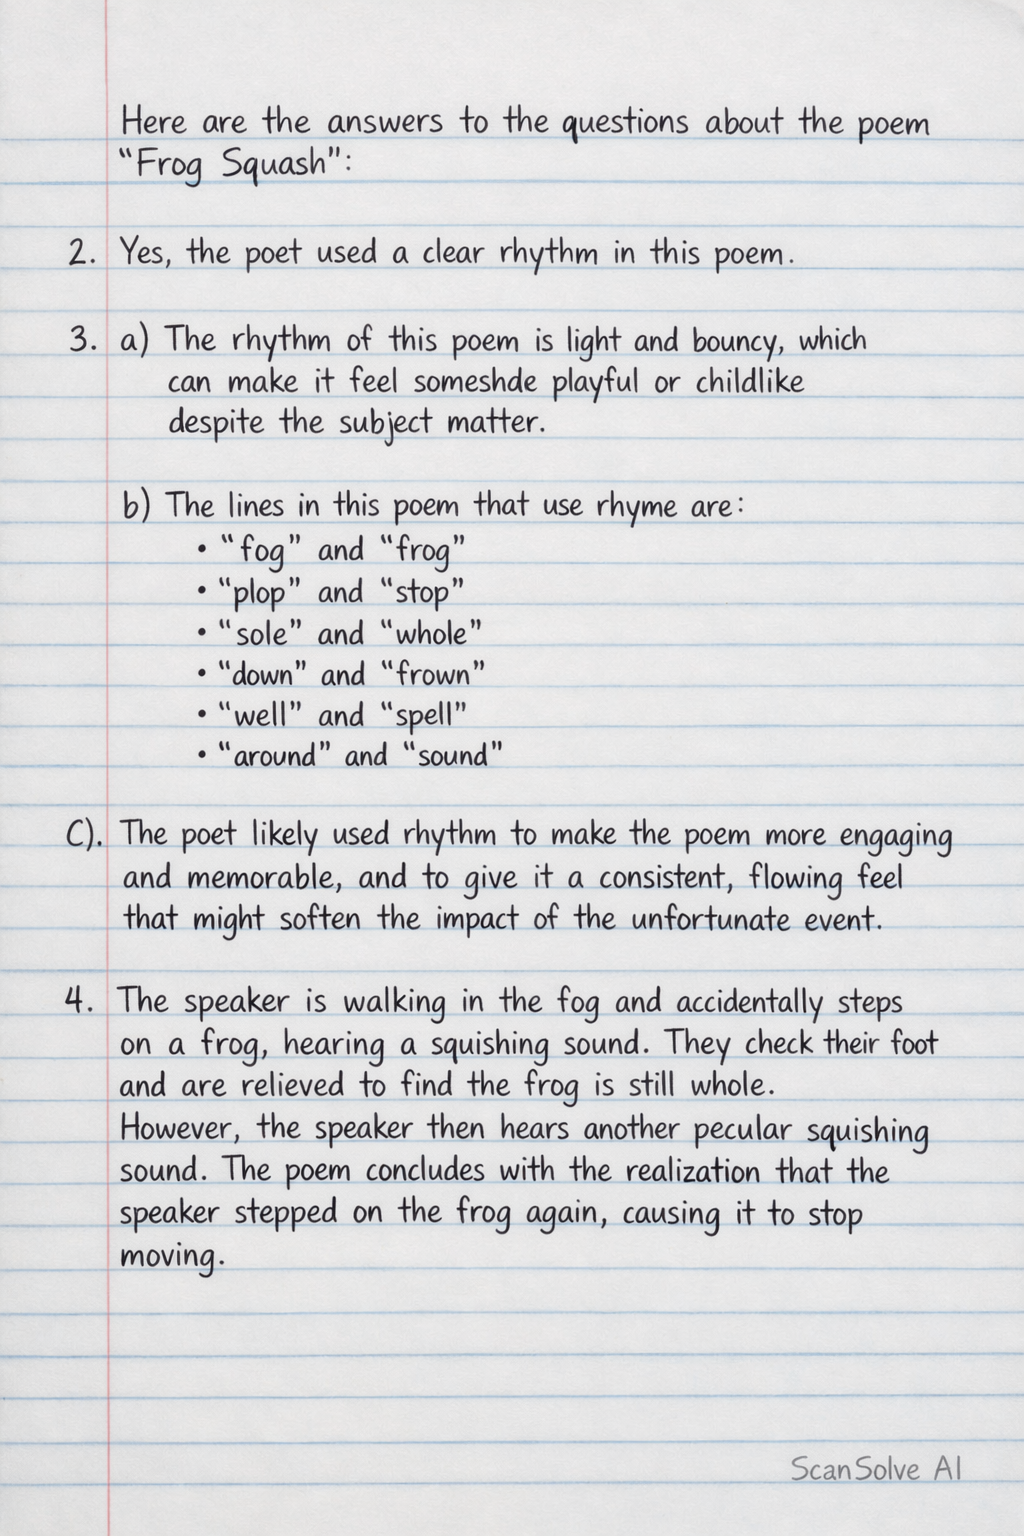 Here are the answers to the questions about the poem
“Frog Squash”:
2. Yes, the poet used a clear rhythm in this poem.
3. a) The rhythm of this poem is light and bouncy, which
can make it feel someshde playful or childlike
despite the subject matter.
b) The lines in this poem that use rhyme are:
• “fog” and “frog”
• “plop” and “stop”
• “sole” and “whole”
• “down” and “frown”
• “well” and “spell”
• “around” and “sound”
C). The poet likely used rhythm to make the poem more engaging
and memorable, and to give it a consistent, flowing feel
that might soften the impact of the unfortunate event.
4. The speaker is walking in the fog and accidentally steps
on a frog, hearing a squishing sound. They check their foot
and are relieved to find the frog is still whole.
However, the speaker then hears another pecular squishing
sound. The poem concludes with the realization that the
speaker stepped on the frog again, causing it to stop
moving.
ScanSolve AI